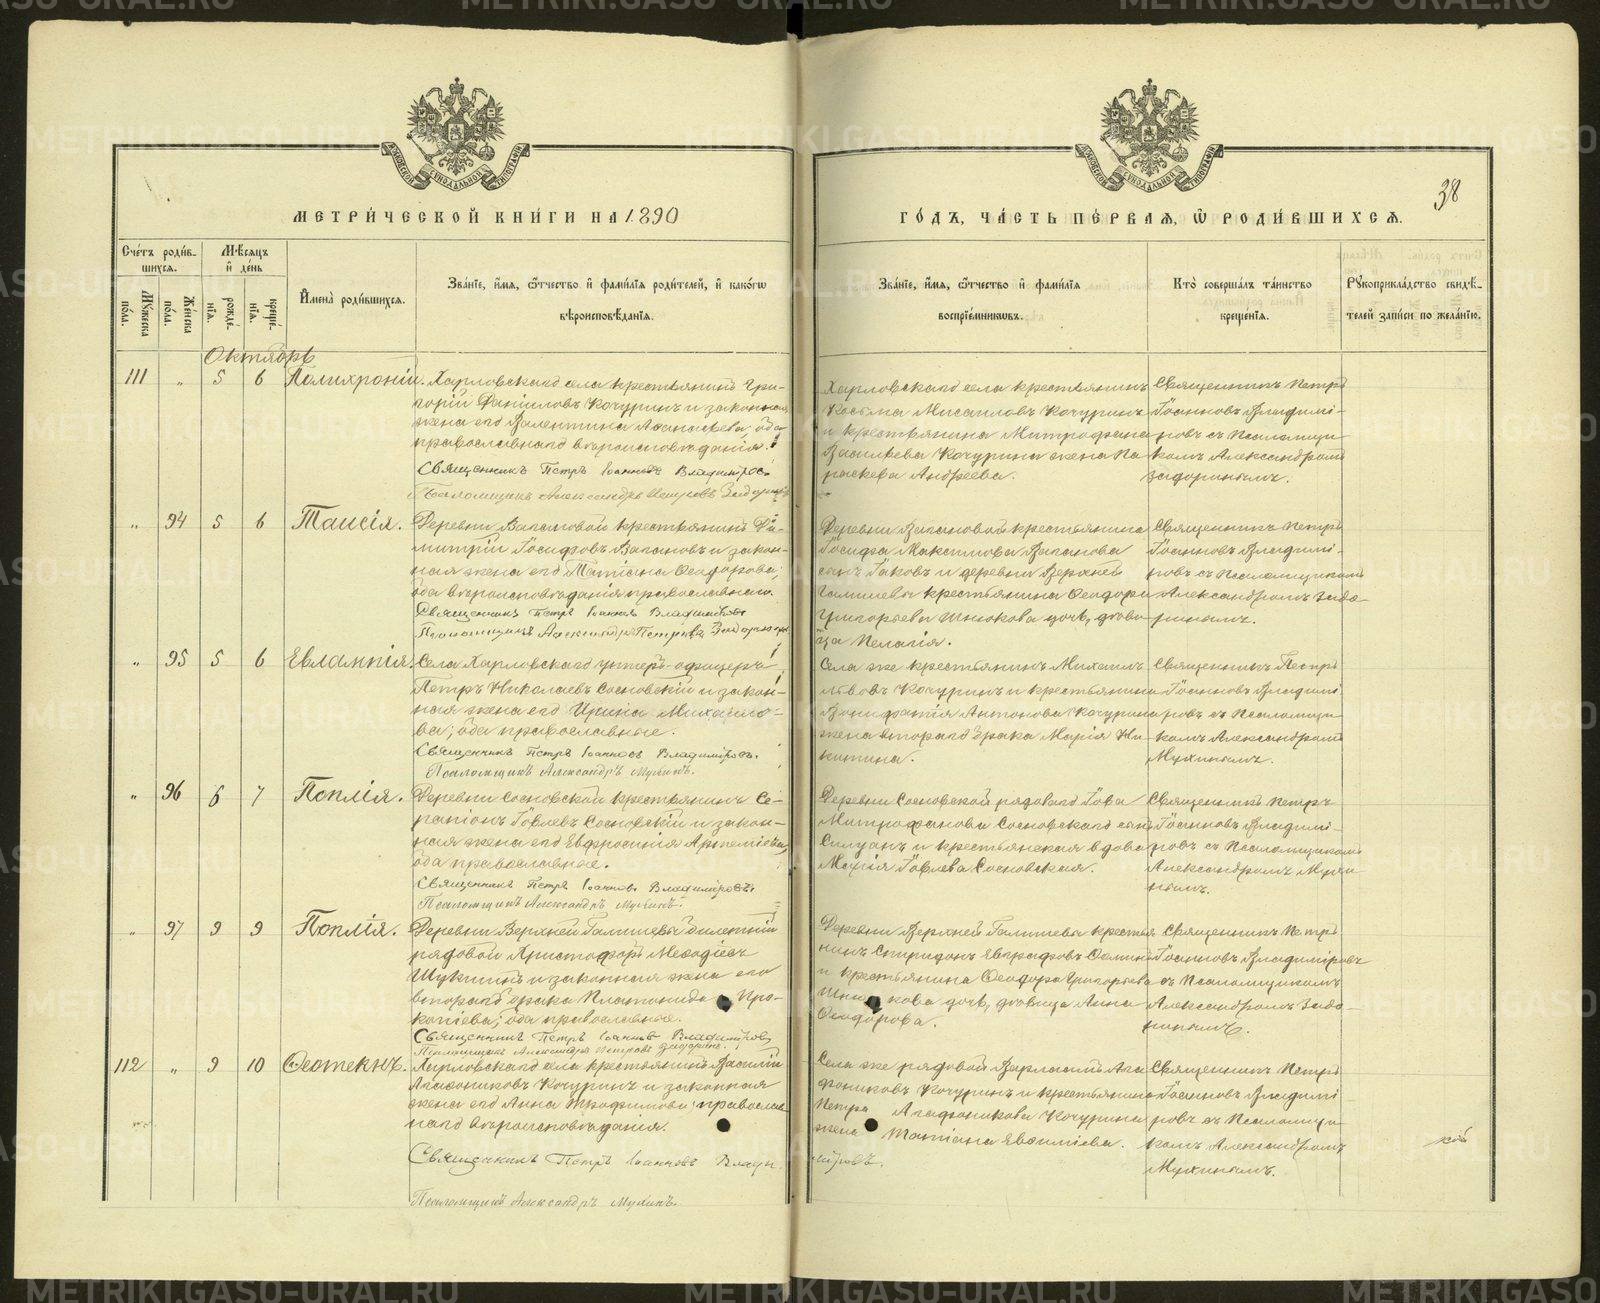 МЕТРИ́ЧЕСКОЙ КНИ́ГИ НА 1890
ГО́ДЪ, ЧА́СТЬ ПЕ́РВАЯ, Ѿ РОДИ́ВШИХСЯ.
38
Сче́тъ роди́в-
шихся.
Мꙋжеска
по́ла.
Же́нска
по́ла.
Мѣ́сяцъ
и҆ де́нь
рожде́-
нїя.
креще́-
нїя.
И҆мена̀ роди́вшихся.
Зва́нїе, и҆́мя, ѻ҆́тчество и҆ фами́лїя роди́телей, и҆ како́гѡ
вѣроисповѣ́данїя.
Зва́нїе, и҆́мя, ѻ҆́тчество и҆ фами́лїя
воспрїе́мникѡвъ.
Кто̀ соверша́лъ та́инство
креще́нїя.
Рꙋкоприкла́дство свидѣ́-
телей за́писи по жела́нїю.
Октябрь
111 „ 5 6 Полихроній.
Харловскаго села крестьянинъ Гри-
горій Даніиловъ Кочуринъ и законная
жена его Валентина Аѳанасьева; оба
православнаго вѣроисповѣданія.
Священникъ Петръ Іоанновъ Владиміровъ
Псаломщикъ Александръ Петровъ
Харловскаго села крестьянинъ
Косьма Михаиловъ Кочуринъ
и крестьянина Митрофана
Васильева Кочурина жена Па
раскева Андреева.
Священникъ Петръ
Іоанновъ Владимі-
ровъ съ псаломщи-
комъ Александромъ
Задоринымъ.
„ 94 5 6 Таисія.
Деревни Вагановой крестьянинъ Ди-
митрій Іосифовъ Вагановъ и закон-
ная жена его Татіана Ѳеодорова;
оба вѣроисповѣданія православнаго.
Священникъ Петръ Іоанновъ Владиміровъ
Псаломщикъ Александръ Петровъ
Деревни Вагановой крестьянина
Іосифа Максимова Ваганова
сынъ Іаковъ и деревни Верхней
Галишевы крестьянина Ѳеодора
Григорьева Шнюкова дочь, дѣви-
ца Пелагія.
Священникъ Петръ
Іоанновъ Владимі-
ровъ съ псаломщикомъ
Александромъ Задо-
ринымъ.
„ 95 5 6 Евлампія.
Села Харловскаго унтеръ-офицеръ
Петръ Николаевъ Сосновскій и закон-
ная жена его Ирина Михаило-
ва; оба православные.
Священникъ Петръ Іоанновъ Владиміровъ.
Псаломщикъ Александръ Мухинъ.
Села же крестьянинъ Михаилъ
Львовъ Кочуринъ и крестьянина
Вонифатія Антонова Кочурина
жена втораго брака Марія Ни
китина.
Священникъ Петръ
Іоанновъ Владимі
ровъ съ псаломщи-
комъ Александромъ
Мухинымъ.
„ 96 6 7 Поплія.
Деревни Сосновской крестьянинъ Се-
рапіонъ Іовлевъ Сосновскій и закон-
ная жена его Евфросинія Артеміева;
оба православные.
Священникъ Петръ Іоанновъ Владиміровъ.
Псаломщикъ Александръ Мухинъ.
Деревни Сосновской рядоваго Іова
Митрофанова Сосновскаго сынъ
Силуанъ и крестьянская вдова
Марія Іовлева Сосновская.
Священникъ Петръ
Іоанновъ Владимі-
ровъ съ псаломщикомъ
Александромъ Мухи
нымъ.
„ 97 9 9 Поплія.
Деревни Верхней Галишевы билетный
рядовой Христофоръ Меѳодіевъ
и законная жена его
втораго брака Платонида Про-
копіева; оба православные.
Священникъ Петръ Іоанновъ Владиміровъ
Псаломщикъ Александръ Петровъ Задоринъ.
Деревни Верхней Галишева крестья
нинъ Спиридонъ Евграфовъ
и крестьянина Ѳеодора Григорьева
Шнюкова дочь, дѣвица Анна
Ѳеодорова.
Священникъ Петръ
Іоанновъ Владиміровъ
съ псаломщикомъ
Александромъ Задо-
ринымъ.
112 „ 9 10 Ѳеотекнъ.
Харловскаго села крестьянинъ Василій
Агаѳониковъ Кочуринъ и законная
жена его Анна Трофимова; православ
наго вѣроисповѣданія.
Священникъ Петръ Іоанновъ Влади
міровъ.
Псаломщикъ Александръ Мухинъ.
Села же рядовой Варлаамъ Ага
ѳониковъ Кочуринъ и крестьянина
Петра Агаѳоникова Кочурина
жена Татіана Евѳиміева.
Священникъ Петръ
Іоанновъ Владимі-
ровъ съ псаломщи-
комъ Александромъ
Мухинымъ.
METRIKI.GASO-URAL.RU